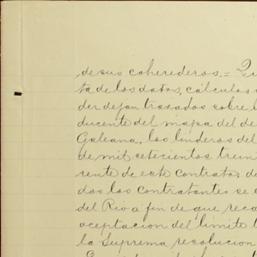 de sus coherederos. =
ta de los datos, cálculos
der dejan trazados sobre
ducente del mapa del de
Galeana, los linderos del
de mil setecientos trein
rente de este contrato de
dos los contratantes se
del Rio a fin de que reco
aceptacion del limite
la Suprema resolucion